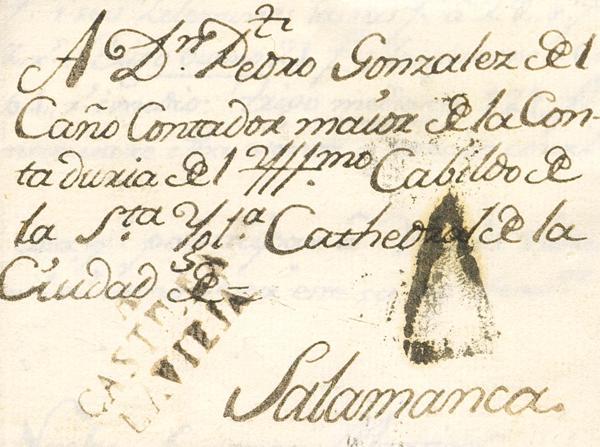 A Dn Pedro Gonzalez del
Caño Contador maior de la Con-
taduria del Yllmo Cabildo de
la Sta Ygla Cathedral de la
Ciudad de =
CASTILLA
LA VIEJA
Salamanca.